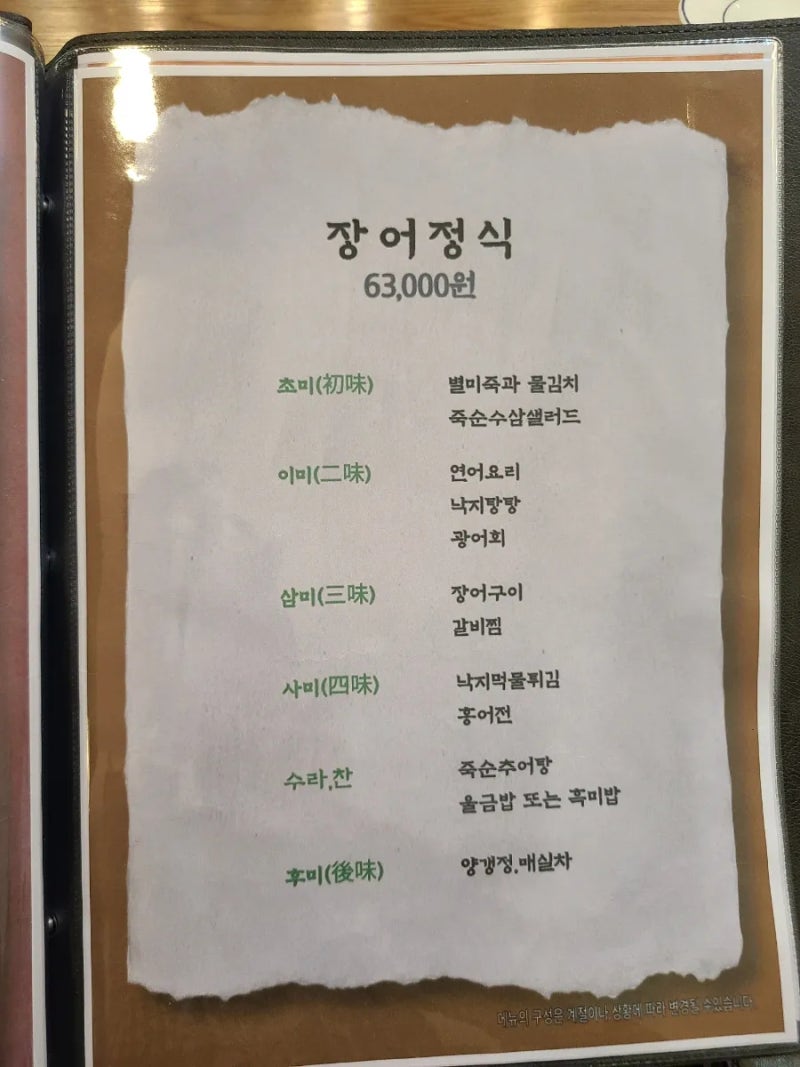 장어정식
63,000원
초미(初味) 별미죽과 물김치
죽순수삼샐러드
이미(二味) 연어요리
낙지탕탕
광어회
삼미(三味) 장어구이
갈비찜
사미(四味) 낙지먹물튀김
홍어전
수라,찬 죽순추어탕
울금밥 또는 흑미밥
후미(後味) 양갱정.매실차
메뉴의 구성은 계절이나 상황에 따라 변경될 수있습니다.